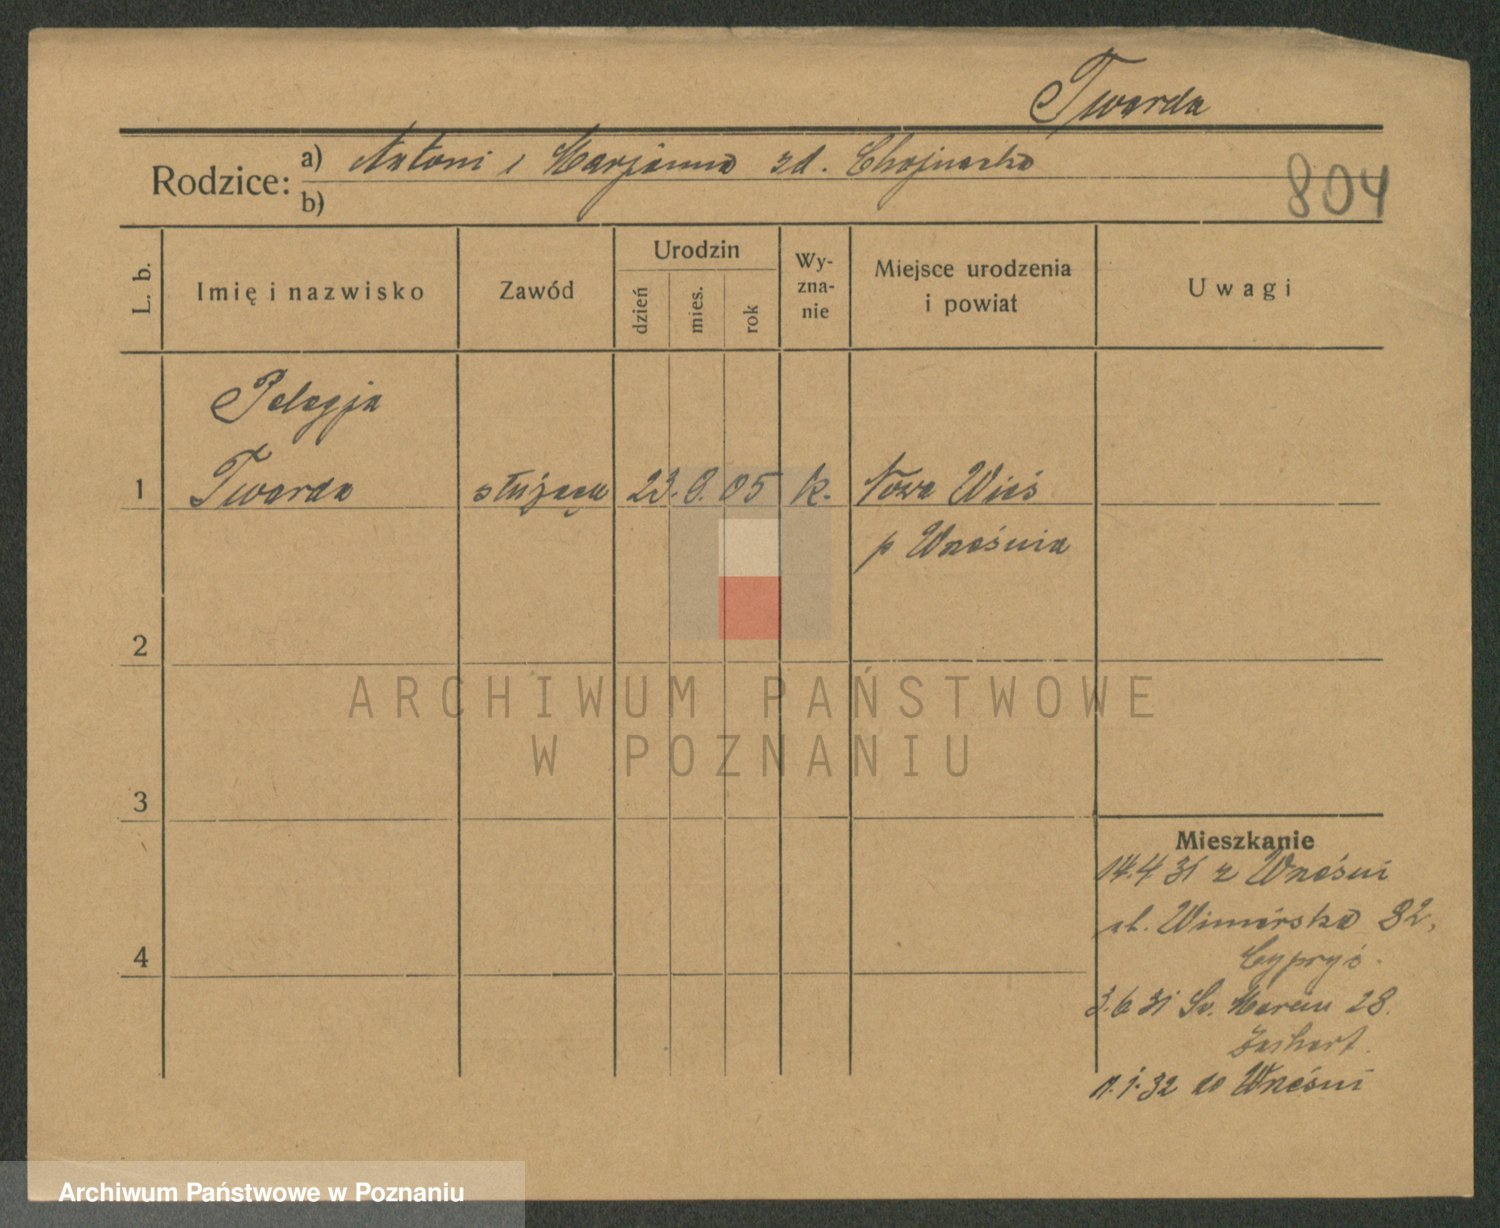 Twarda
Rodzice: a) Antoni i Marjanna zd. Chojnacka
b)
804
L. b.
Imię i nazwisko
Zawód
Urodzin
dzień
mies.
rok
Wy-
zna-
nie
Miejsce urodzenia
i powiat
Uwagi
Pelagja
1 Twarda służąca 23. 9. 05 k. Nowa Wieś
p Września
2
3
4
Mieszkanie
14.4 31 z Wrześni
82,
3.6 31 Św. Marcin 28.
11.1.32 do Wrześni
ARCHIWUM PAŃSTWOWE
W POZNANIU
Archiwum Państwowe w Poznaniu